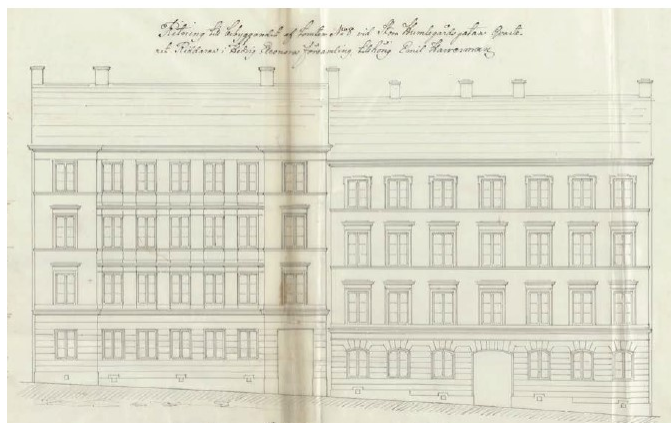 Ritning till bebyggandet af tomten N:o 8 vid Stora Humlegårds gatan Qvarte-
ret Riddaren i Hedvig Eleonora församling tillhörig Emil